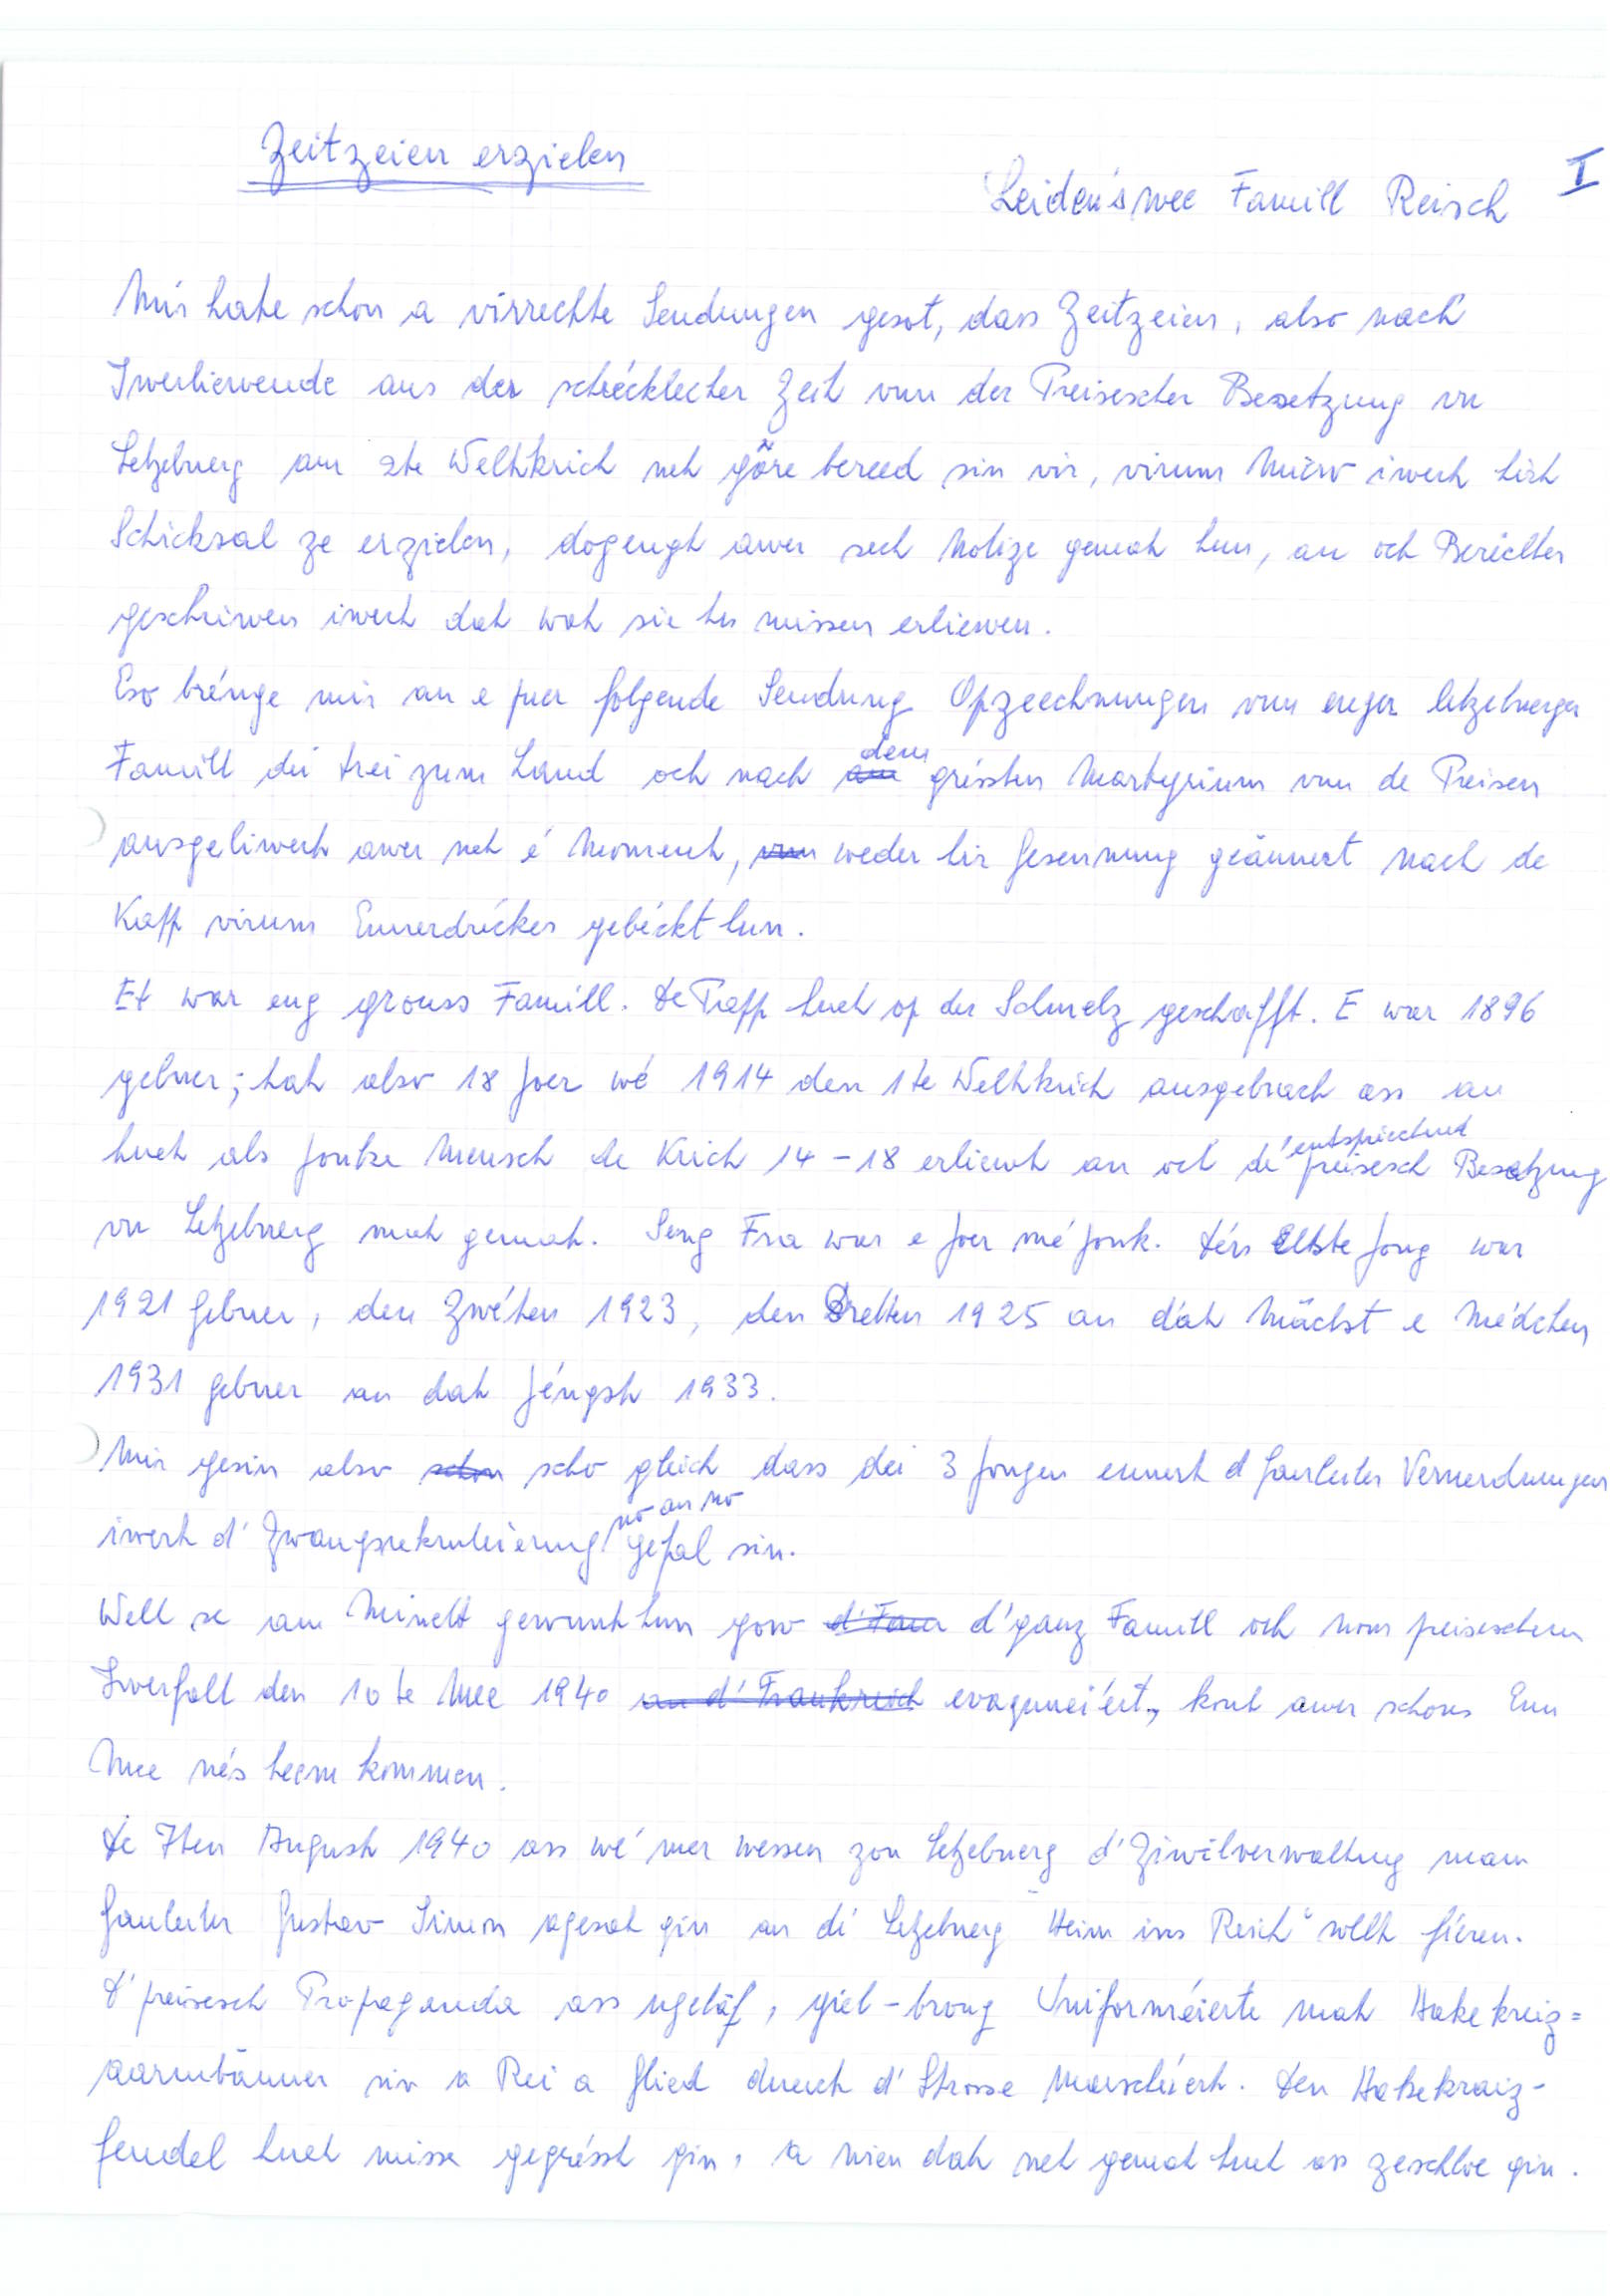 Zeitzeien erzielen
Leidenswee Famill Reisch I
Mir hate schon a virrechte Sendungen gesot, dass Zeitzeien, also nach
Iwerliewende aus der schrécklecher Zeit vun der Preisescher Besetzung vu
Letzebuerg am 2te Weltkrich net gäre bereed sin vir, virum Micro iwert hirt
Schicksal ze erzielen, dogengt awer sech Notize gemat hun, an och Berichter
geschriwen iwert dat wat sie hu missen erliewen.
Eso brénge mir an e puer folgende Sendung Opzeechnungen vun enger letzebuerger
Famill déi trei zum Land och nach dem gréssten Martyrium vun de Preisen
ausgeliwert awer net é Moment, weder hir Gesennung geännert nach de
Kapp virum Ennerdrécker gebéckt hun.
Et war eng grouss Famill. De Papp huet op der Schmelz geschafft. E war 1896
gebuer; hat also 18 Joer wé 1914 den 1te Weltkrich ausgebrach ass an
huet als jonke Mensch de Krich 14-18 erliewt an och dé entspriechend preisesch Besatzung
vu Letzebuerg mat gemat. Seng Fra war e Joer mé jonk. Hirn Elste Jong war
1921 gebuer, den Zwéten 1923, den Dretten 1925 an dat Nächst e Médchen
1931 gebuer an dat Jéngst 1933.
Mir gesin also scho gleich dass dei 3 Jongen ennert d Gauleiter Veruerdnungen
iwert d'Zwangsrekrutéierung no an no gefal sin.
Well se am Minett gewunnt hun gow d'ganz Famill och nom preiseschen
Iwerfall den 10te Mee 1940 evaquéiert, konnt awer schons Enn
Mee nés heem kommen.
De 7ten August 1940 ass wé mer wessen zou Letzebuerg d'Ziwilverwaltung mam
Gauleiter Gustav Simon agesat gin an dé Letzebuerg "Heim ins Reich" sollt féren.
D'preisesch Propaganda ass ugelaf, giel-brong Uniforméierte mat Hakekreiz=
aarmbänner sin a Rei a Glied duerch d'Strosse marschéiert. Den Hakekraiz-
fendel huet misse gegrésst gin, a wien dat net gemat huet ass zeschloe gin.